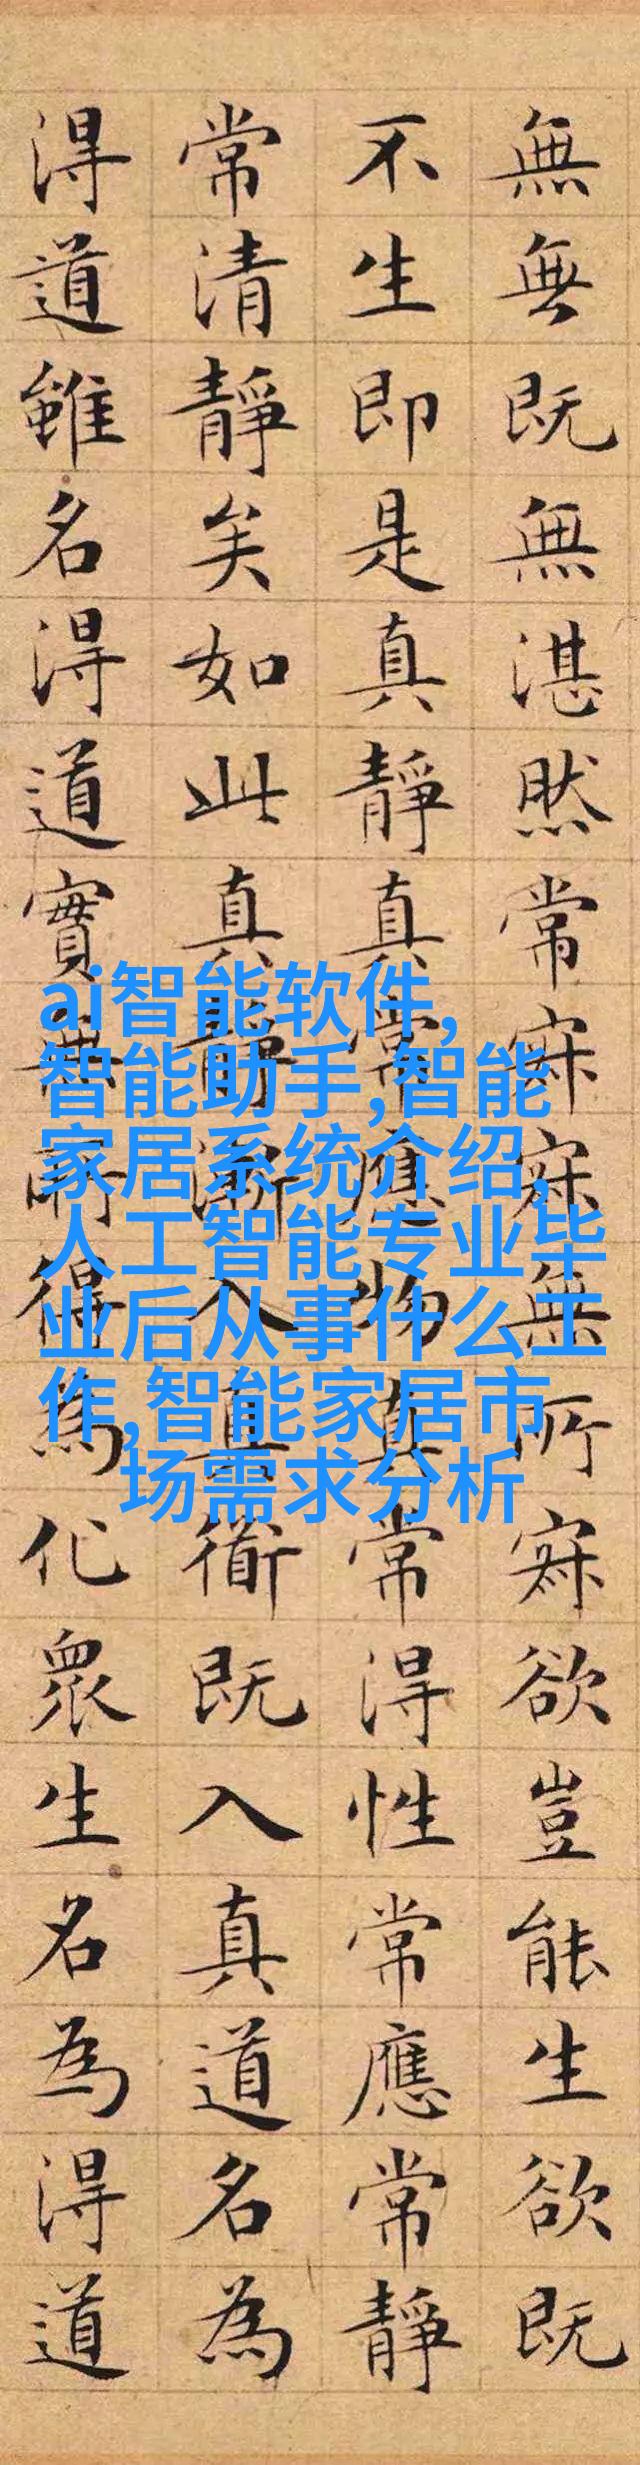 無無既無湛然常寂寂無所寂欲豈能生欲既
不生即是真靜真常應物真常得性常應常靜
常清靜矣如此真靜漸入真衜既入真道名為
得道雖名得道實無所得為化眾生名為得道
ai智能软件,
智能助手,智能
家居系统介绍,
人工智能专业毕
业后从事什么工
作,智能家居市
场需求分析